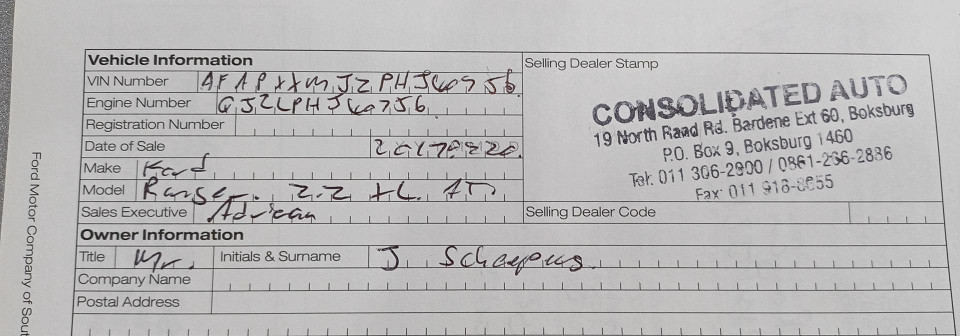 Vehicle Information
Selling Dealer Stamp
VIN Number AFAPXXMJ2PHJ60756
Engine Number QJ2LPHJ60756
Registration Number
Date of Sale
Make Ford
Model Ranger 2.2 XL
Sales Executive Adrian
CONSOLIDATED AUTO
19 North Rand Rd. Bardene Ext 60, Boksburg
P.O. Box 9, Boksburg 1460
Tel: 011 306-2900 / 0861-236-2886
Fax: 011 918-8655
Selling Dealer Code
Owner Information
Title Mr. Initials & Surname J
Company Name
Postal Address
Ford Motor Company of Sout